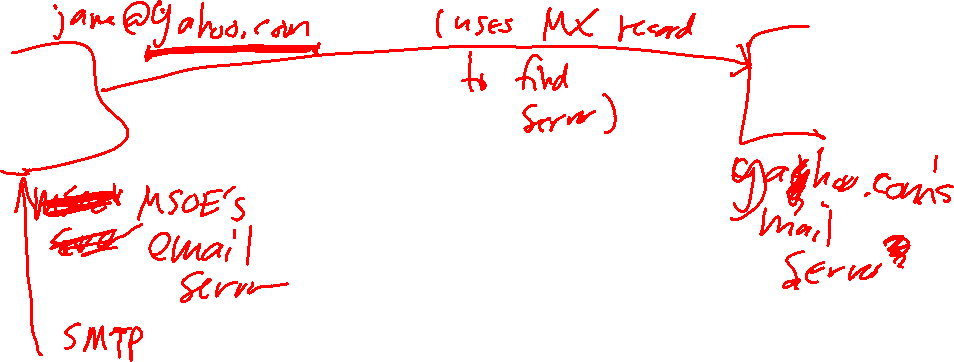 jane@yahoo.com
(uses MX record
to find
server)
MSOE's
email
server
yahoo.com's
mail
server
SMTP